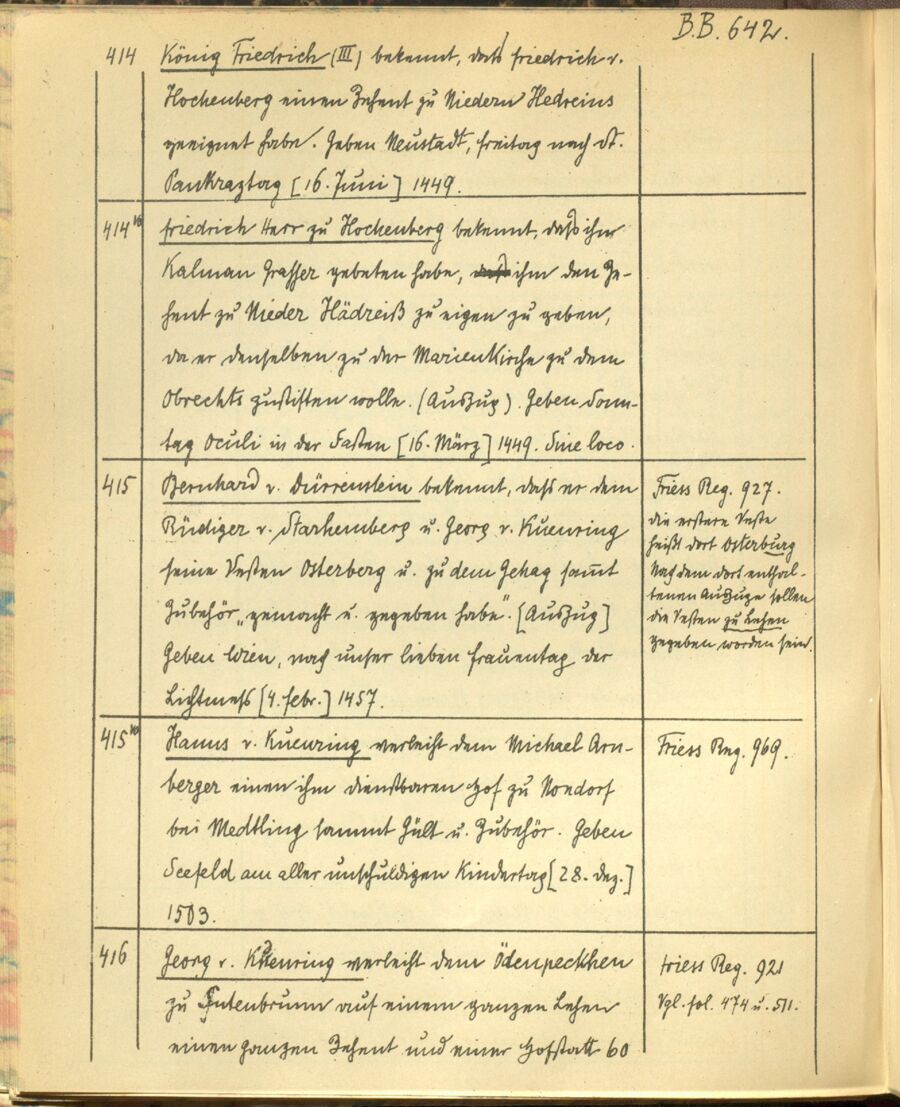 B.B. 642.
414 König Friedrich (III) bekennt, dass friedrich v.
Hochenberg einen Zehent zu Niedern Hedreins
geeignet habe. Geben Neustadt, freitag nach St.
Pankraztag [16. Juni] 1449.
414 vo friedrich Herr zu Hochenberg bekennt, dass ihm
Kalman Grasser gebeten habe, ihm den Ze-
hent zu Nieder Hädreiß zu eigen zu geben,
da er denselben zu der Marienkirche zu dem
Obrechts zustiften wolle. (Auszug). Geben Sonn-
tag Oculi in der Fasten [16. März] 1449. Sine loco.
415 Bernhard v. Dürrenstein bekennt, dass er dem
Rüdiger v. Starhemberg u. Georg v. Kuenring
seine Vesten Osterberg u. zu dem Gehag sammt
Zubehör „gemacht u. gegeben habe". [Auszug]
Geben Wien, nach unser lieben frauentag der
Lichtmess [4. febr.] 1457.
Friess Reg. 927.
die erstere Veste
heißt dort Osterburg
Nach dem dort enthal-
tenen Auszuge sollen
die Vesten zu Lehen
gegeben worden sein.
415 vo Hanns v. Kuenring verleiht dem Michael Arn-
berger einen ihm dienstbaren Hof zu Nondorf
bei Medtling sammt Gült u. Zubehör. Geben
Seefeld am aller unschuldigen Kindertag [28. Dez.]
1503.
Friess Reg. 969.
416 Georg v. Kuenring verleiht dem Ödenpeckhen
zu Gutenbrunn auf einem ganzen Lehen
einen ganzen Zehent und einer Hofstatt 60
Friess Reg. 921
Vgl. fol. 474 u. 511.